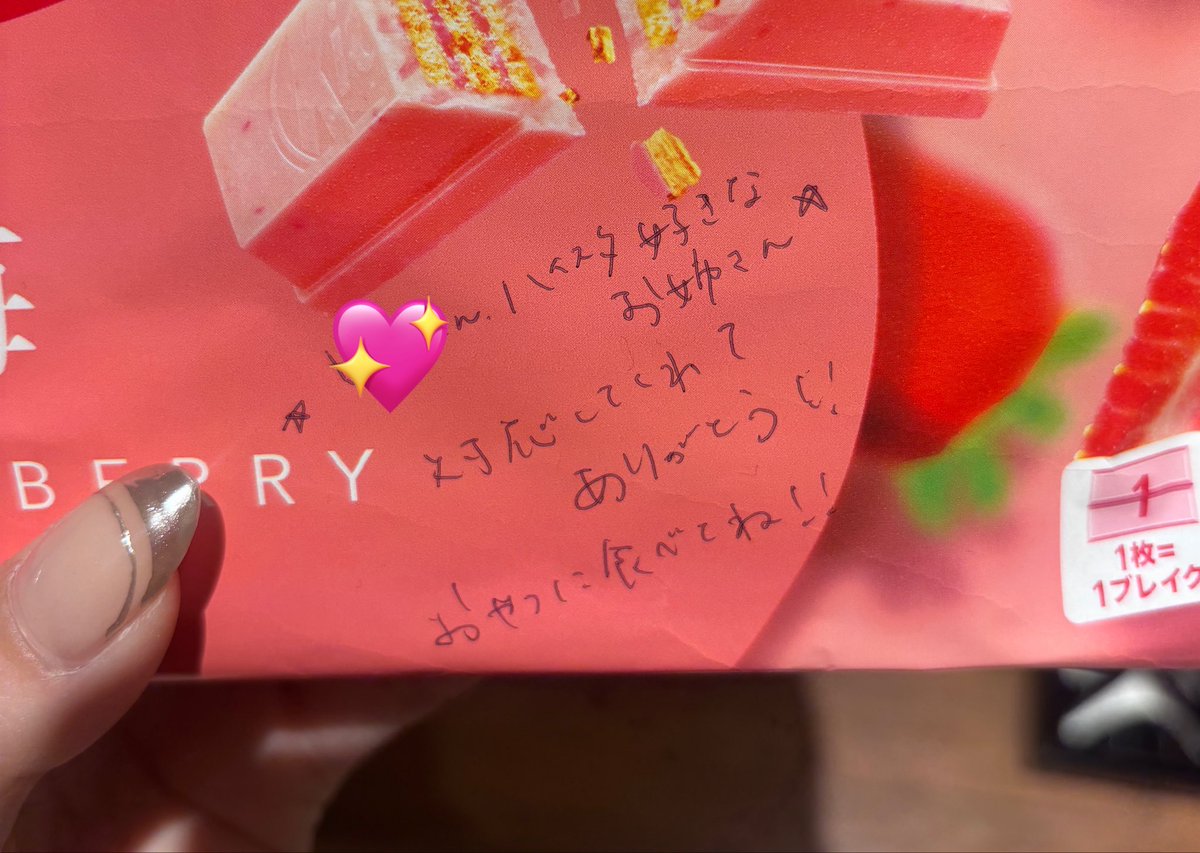 ハイスタ好きな
お姉さん
対応してくれて
ありがとう
おやつに食べてね!!
BERRY
1
1枚=
1ブレイク